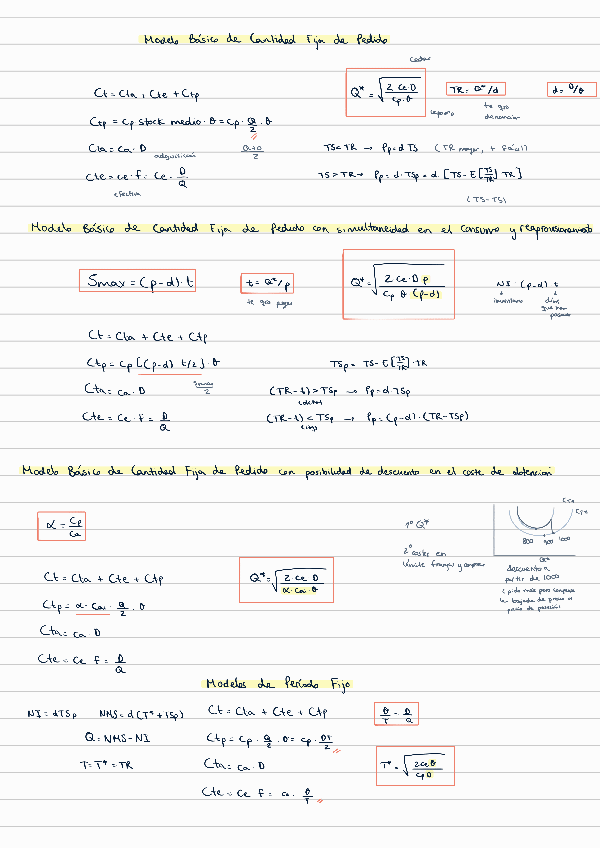 Modelo Básico de Cantidad Fija de Pedido
Ct = Cta + Cte + Ctp
Q* = √(2 Ce D / Cp θ)
TR = Q*/d
d = D/θ
Ctp = Cp stock medio · θ = Cp · Q/2 · θ
Cta = Ca · D
adquisición
Q+0/2
TS < TR → Pp = d TS (TR mayor, + fácil)
Cte = Ce · f = Ce · D/Q
efectiva
TS > TR → Pp = d · TSp = d · [TS - E[TS/TR] TR]
(TS-TS)
Modelo Básico de Cantidad Fija de Pedido con simultaneidad en el consumo y reaprovisionamiento
Smax = (p-d) · t
t = Q*/p
Q* = √(2 Ce · D p / Cp θ (p-d))
NI: (p-d) t
inventario
días que han pasado
Ct = Cta + Cte + Ctp
Ctp = Cp [(p-d) t/2] · θ
TSp = TS - E[TS/TR] · TR
Cta = Ca · D
Smax/2
(TR-t) > TSp → Pp = d TSp
Cte = Ce · f = D/Q
(TR-t) < TSp → Pp = (p-d) · (TR-TSp)
Modelo Básico de Cantidad Fija de Pedido con posibilidad de descuento en el coste de obtención
α = Cp/Ca
1º Q*
2º costes en
límite franja y comparar
800 900 1000
Q*
descuento a
partir de 1000
Ct = Cta + Cte + Ctp
Q* = √(2 Ce D / α · Ca · θ)
Ctp = α · Ca · Q/2 · θ
Cta = Ca D
Cte = Ce f = D/Q
Modelos de Período Fijo
NI = dTSp
NMS = d(T* + TSp)
Ct = Cta + Cte + Ctp
θ/T = D/Q
Q = NMS - NI
Ctp = Cp · Q/2 · θ = Cp · DT/2
T = T* = TR
Cta = Ca · D
T* = √(2 Ce θ / Cp D)
Cte = Ce f = Ce · θ/T